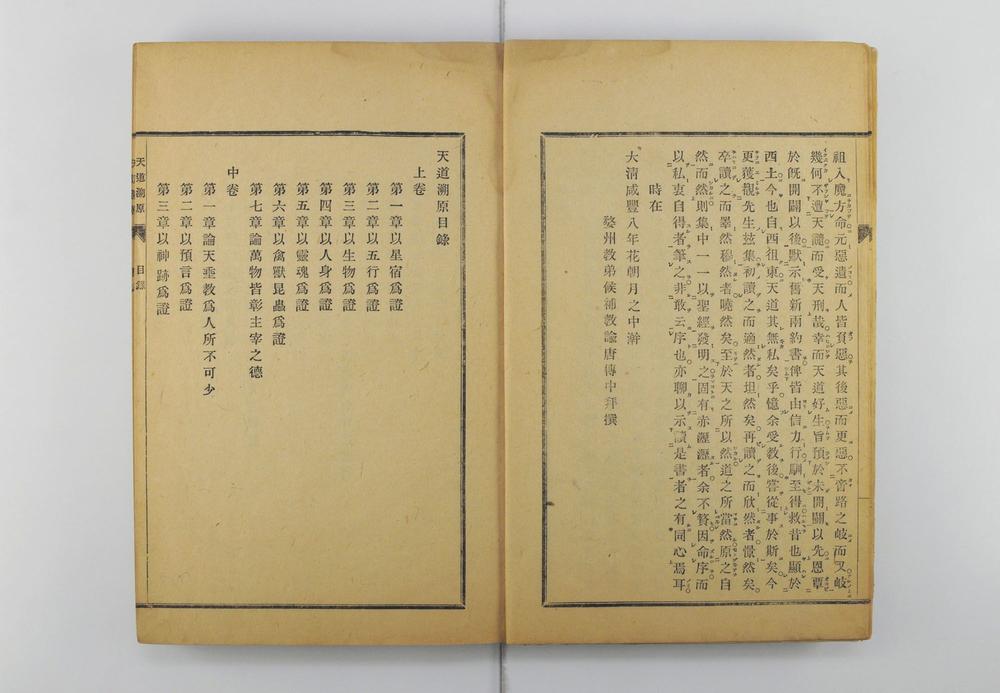 祖入魔方命元惡遣而人皆負惡其後惡而更惡不啻路之岐而又岐
幾何不遭天譴而受天刑哉幸而天道好生旨預於未開闢以先恩覃
於旣開闢以後默示舊新兩約書俾皆由信力行馴至得救昔也顯於
西土今也自西徂東天道其無私矣乎憶余受教後嘗從事於斯矣今
更獲觀先生玆集初讀之而適然者坦然矣再讀之而欣然者憬然矣
卒讀之而睪然穆然者曉然矣至於天之所以然道之所當然原之自
然而然則集中一一以聖經發明之固有赤瀝瀝者余不贅因命序而
以私衷自得者筆之非敢云序也亦聊以示讀是書者之有同心焉耳
時在
大淸咸豐八年花朝月之中澣
婺州教弟候補教諭唐傳中拜撰
天道溯原目錄
上卷
第一章以星宿爲證
第二章以五行爲證
第三章以生物爲證
第四章以人身爲證
第五章以靈魂爲證
第六章以禽獸昆蟲爲證
第七章論萬物皆彰主宰之德
中卷
第一章論天垂教爲人所不可少
第二章以預言爲證
第三章以神跡爲證
天道溯原
目錄